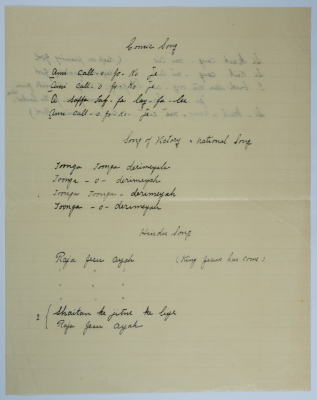 Comic Song
Ami call-o-fo-ko je
Ami call-o fo-ko je
A soffa saf-fa lay-fa-lee
Ami-call-o fo-ko-je
Song of Victory - National Song
Toonga Toonga derimeyah
Toonga - o - derimeyah
Toonga Toonga - derimeyah
Toonga - o - derimeyah
Hindu Song
Raja Jesu ayah (King Jesus has come)
" " "
" " "
2 { Shaitan ke jutne ke liye
Raja Jesu ayah